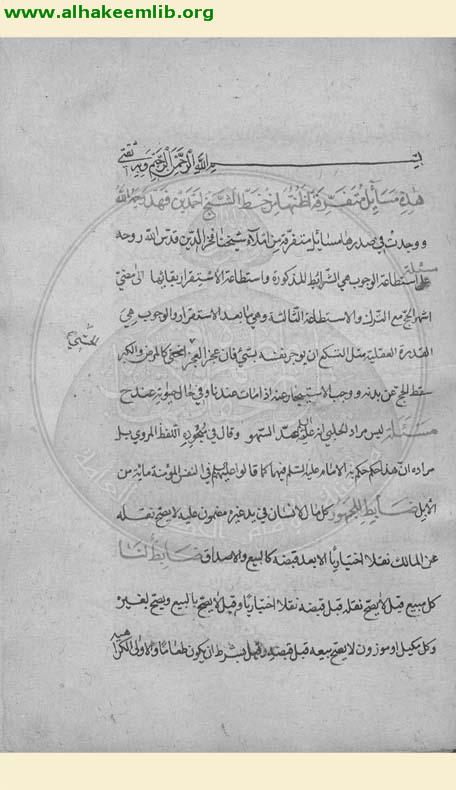 www.alhakeemlib.org
بسم الله الرحمن الرحيم وبه ثقتي
هذه مسايل متفرقة نقلتها من خط الشيخ احمد بن فهد رحمه الله
ووجدت في صدرها مسايل متفرقة من املاء شيخنا فخر الدين قدس الله روحه
مسئلة
استطاعة الوجوب هي الشرايط المذكورة واستطاعة الاستقرار بقائها الى مضي
اشهر الحج مع الترك والاستطاعة الثالثة وهي ما بعد الاستقرار والوجوب هي
القدرة العقلية مثل التسكع ان يوجر نفسه بشي فان عجز العجز الحقيقي كالمرض والكبر
سقط الحج عن بدنه ووجب الاستيجار عنه اذا مات عندنا وفي حال حيوته عند ح
مسئلة ليس مراد الحلي انه عليه السلم السهو وقال في سجوده اللفظ المروي بل
مراده ان هذا حكم حكم به الامام عليه السلم فيها كما قالوا عليهم في النفس المؤمنة ماية من
الابل ضابط للجمهور كل مال الانسان في يد غيره مضمون عليه لا يصح نقله
عن المالك نقلا اختياريا الا بعد قبضه كالبيع والاصداق ضابط لنا
كل مبيع قيل لا يصح نقله قبل قبضه نقلا اختياريا وقيل لا يصح بالبيع ويصح بغيره
وكل مكيل او موزون لا يصح بيعه قبل قبضه وقيل بشرط ان يكون طعاما والاولى الكراهية